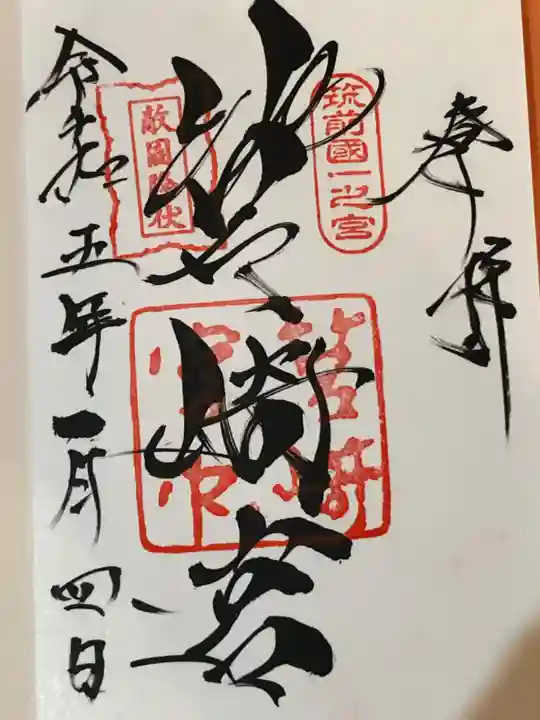 奉拝
筑前國一之宮
筥崎宮
筥崎宮印
敵國降伏
令和五年一月四日